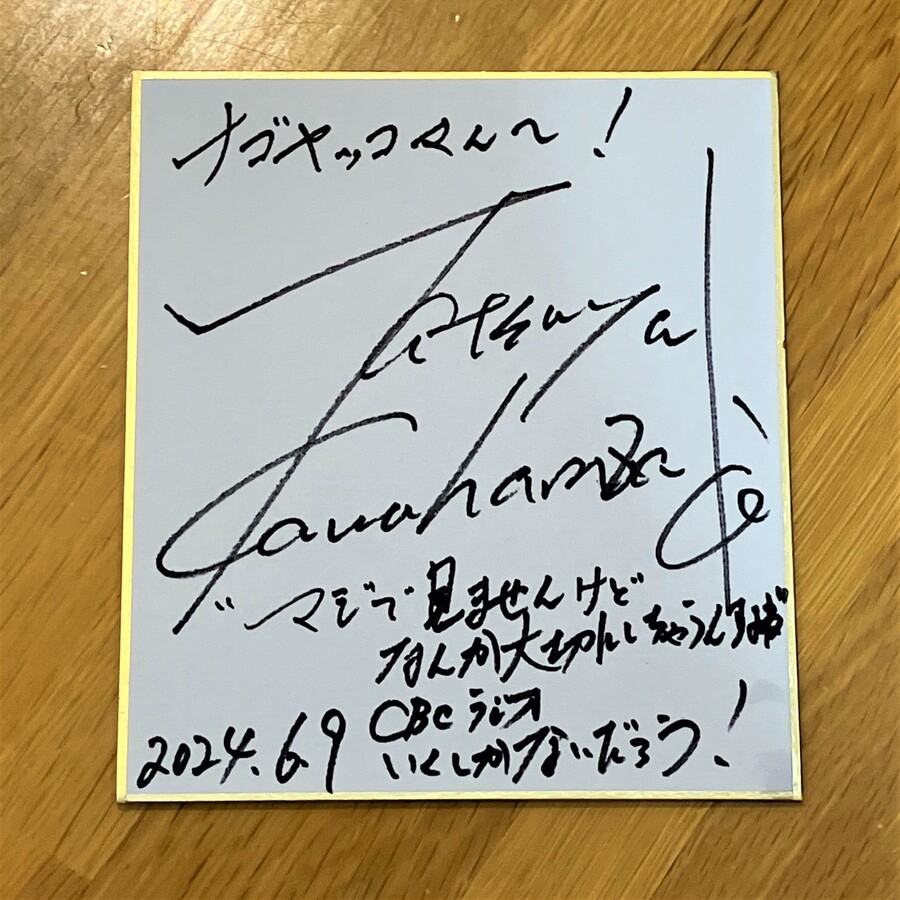 ナゴヤッコさんへ!
Tatsuya
Kawahara
"マジで見ませんけど
なんか大切にしちゃうんすよね"
CBCラジオ
いくしかないだろう!
2024.6.9